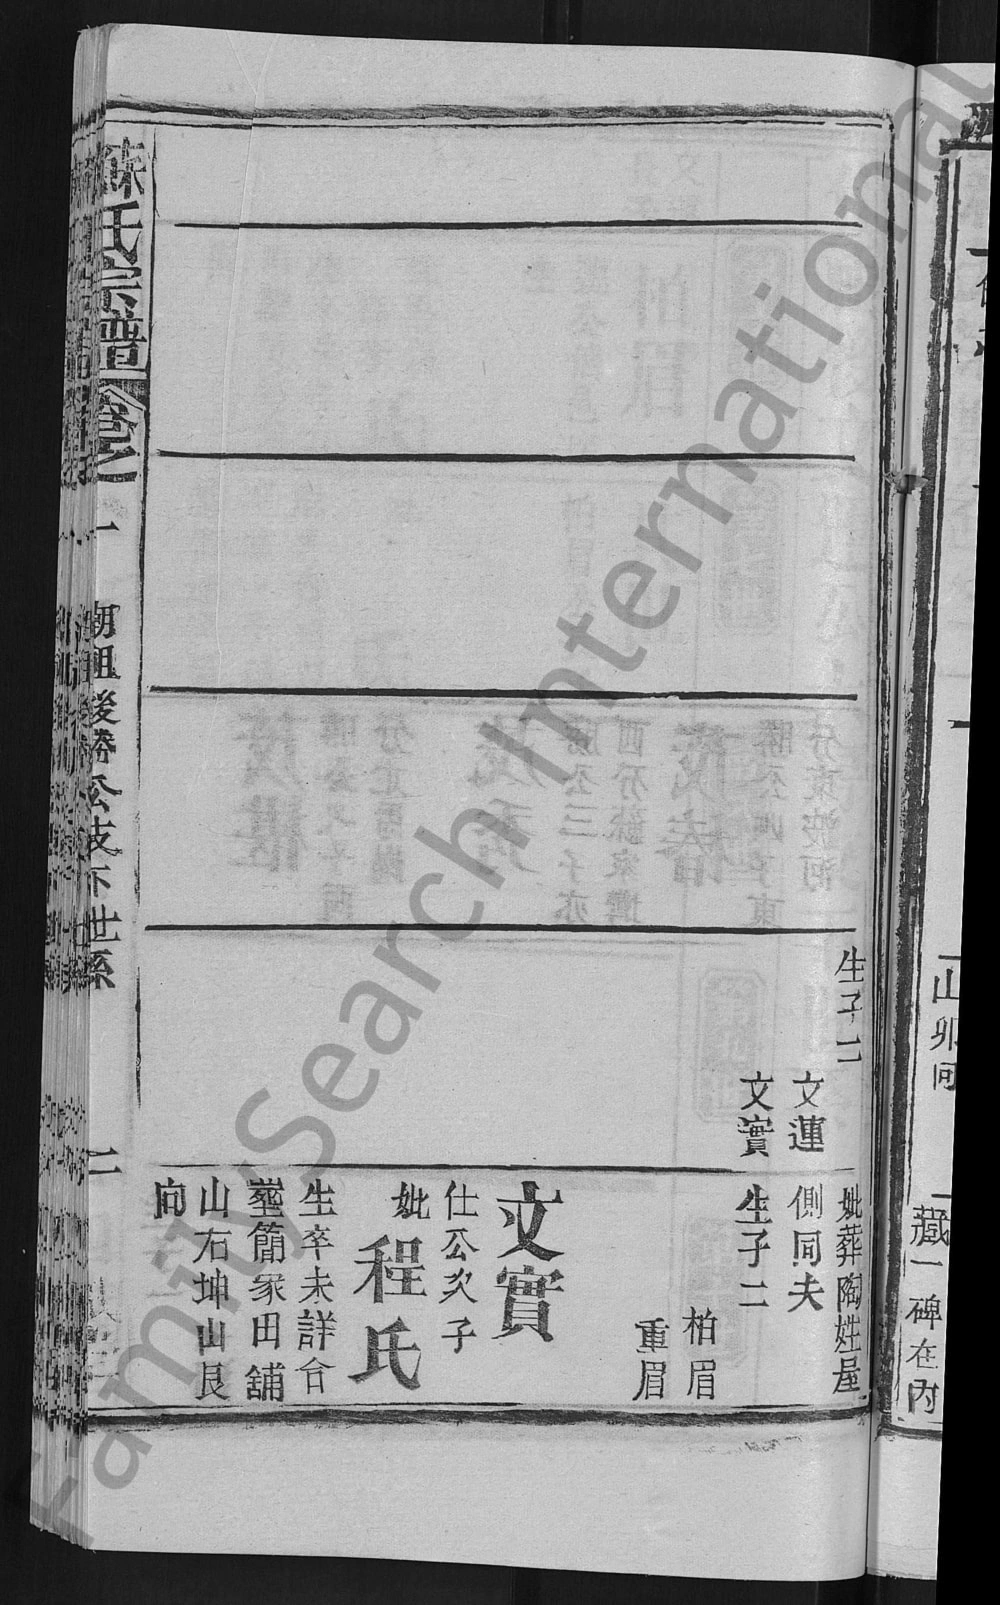 山卯向
藏一碑在內
生子二
文蓮
文實
妣葬陶姓屋
側同夫
生子二
柏眉
重眉
文實
仕公次子
妣程氏
生卒未詳合
塟簡家田舖
山右坤山艮
向
蘇氏宗譜 卷之一 朝祖後勝公支下世系 二
FamilySearch International